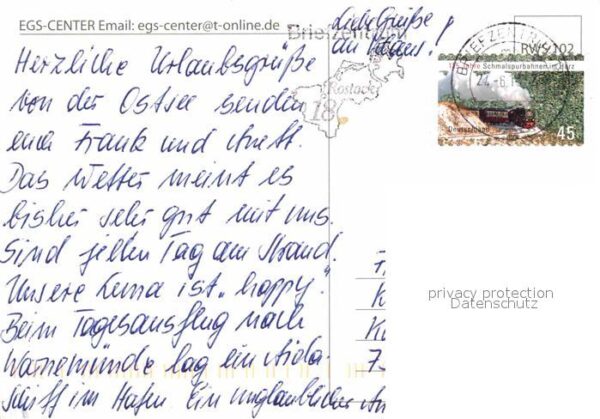 EGS-CENTER Email: egs-center@t-online.de
Liebe Grüße
an !
Briefzentrum
Rostock
18
BRIEFZENTRUM
RWS 102
Schmalspurbahnen im Harz
Deutschland
45
Herzliche Urlaubsgrüße
von der Ostsee senden
euch Frank und
Das Wetter meint es
bisher sehr gut mit uns.
Sind jeden Tag am Strand.
Unsere ist „happy".
Beim Tagesausflug nach
Warnemünde lag ein Aida-
schiff im Hafen. Ein unglaublicher
7
privacy protection
Datenschutz